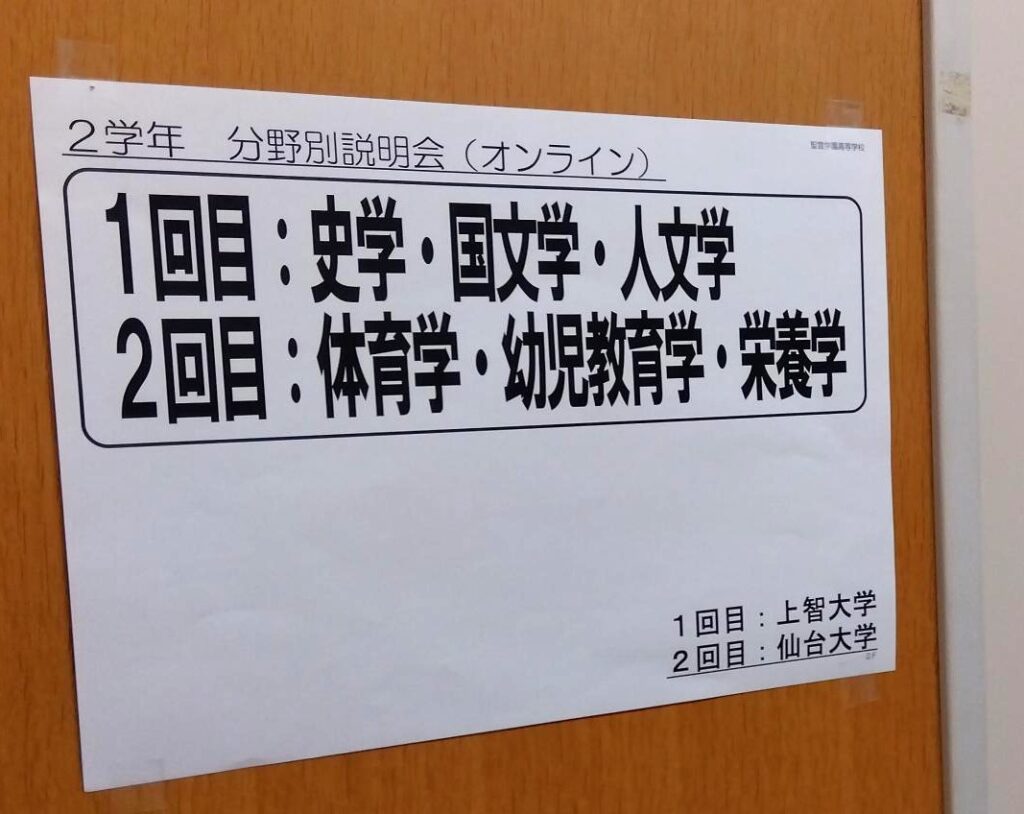 2学年 分野別説明会(オンライン)
聖霊学園高等学校
1回目:史学・国文学・人文学
2回目:体育学・幼児教育学・栄養学
1回目:上智大学
2回目:仙台大学